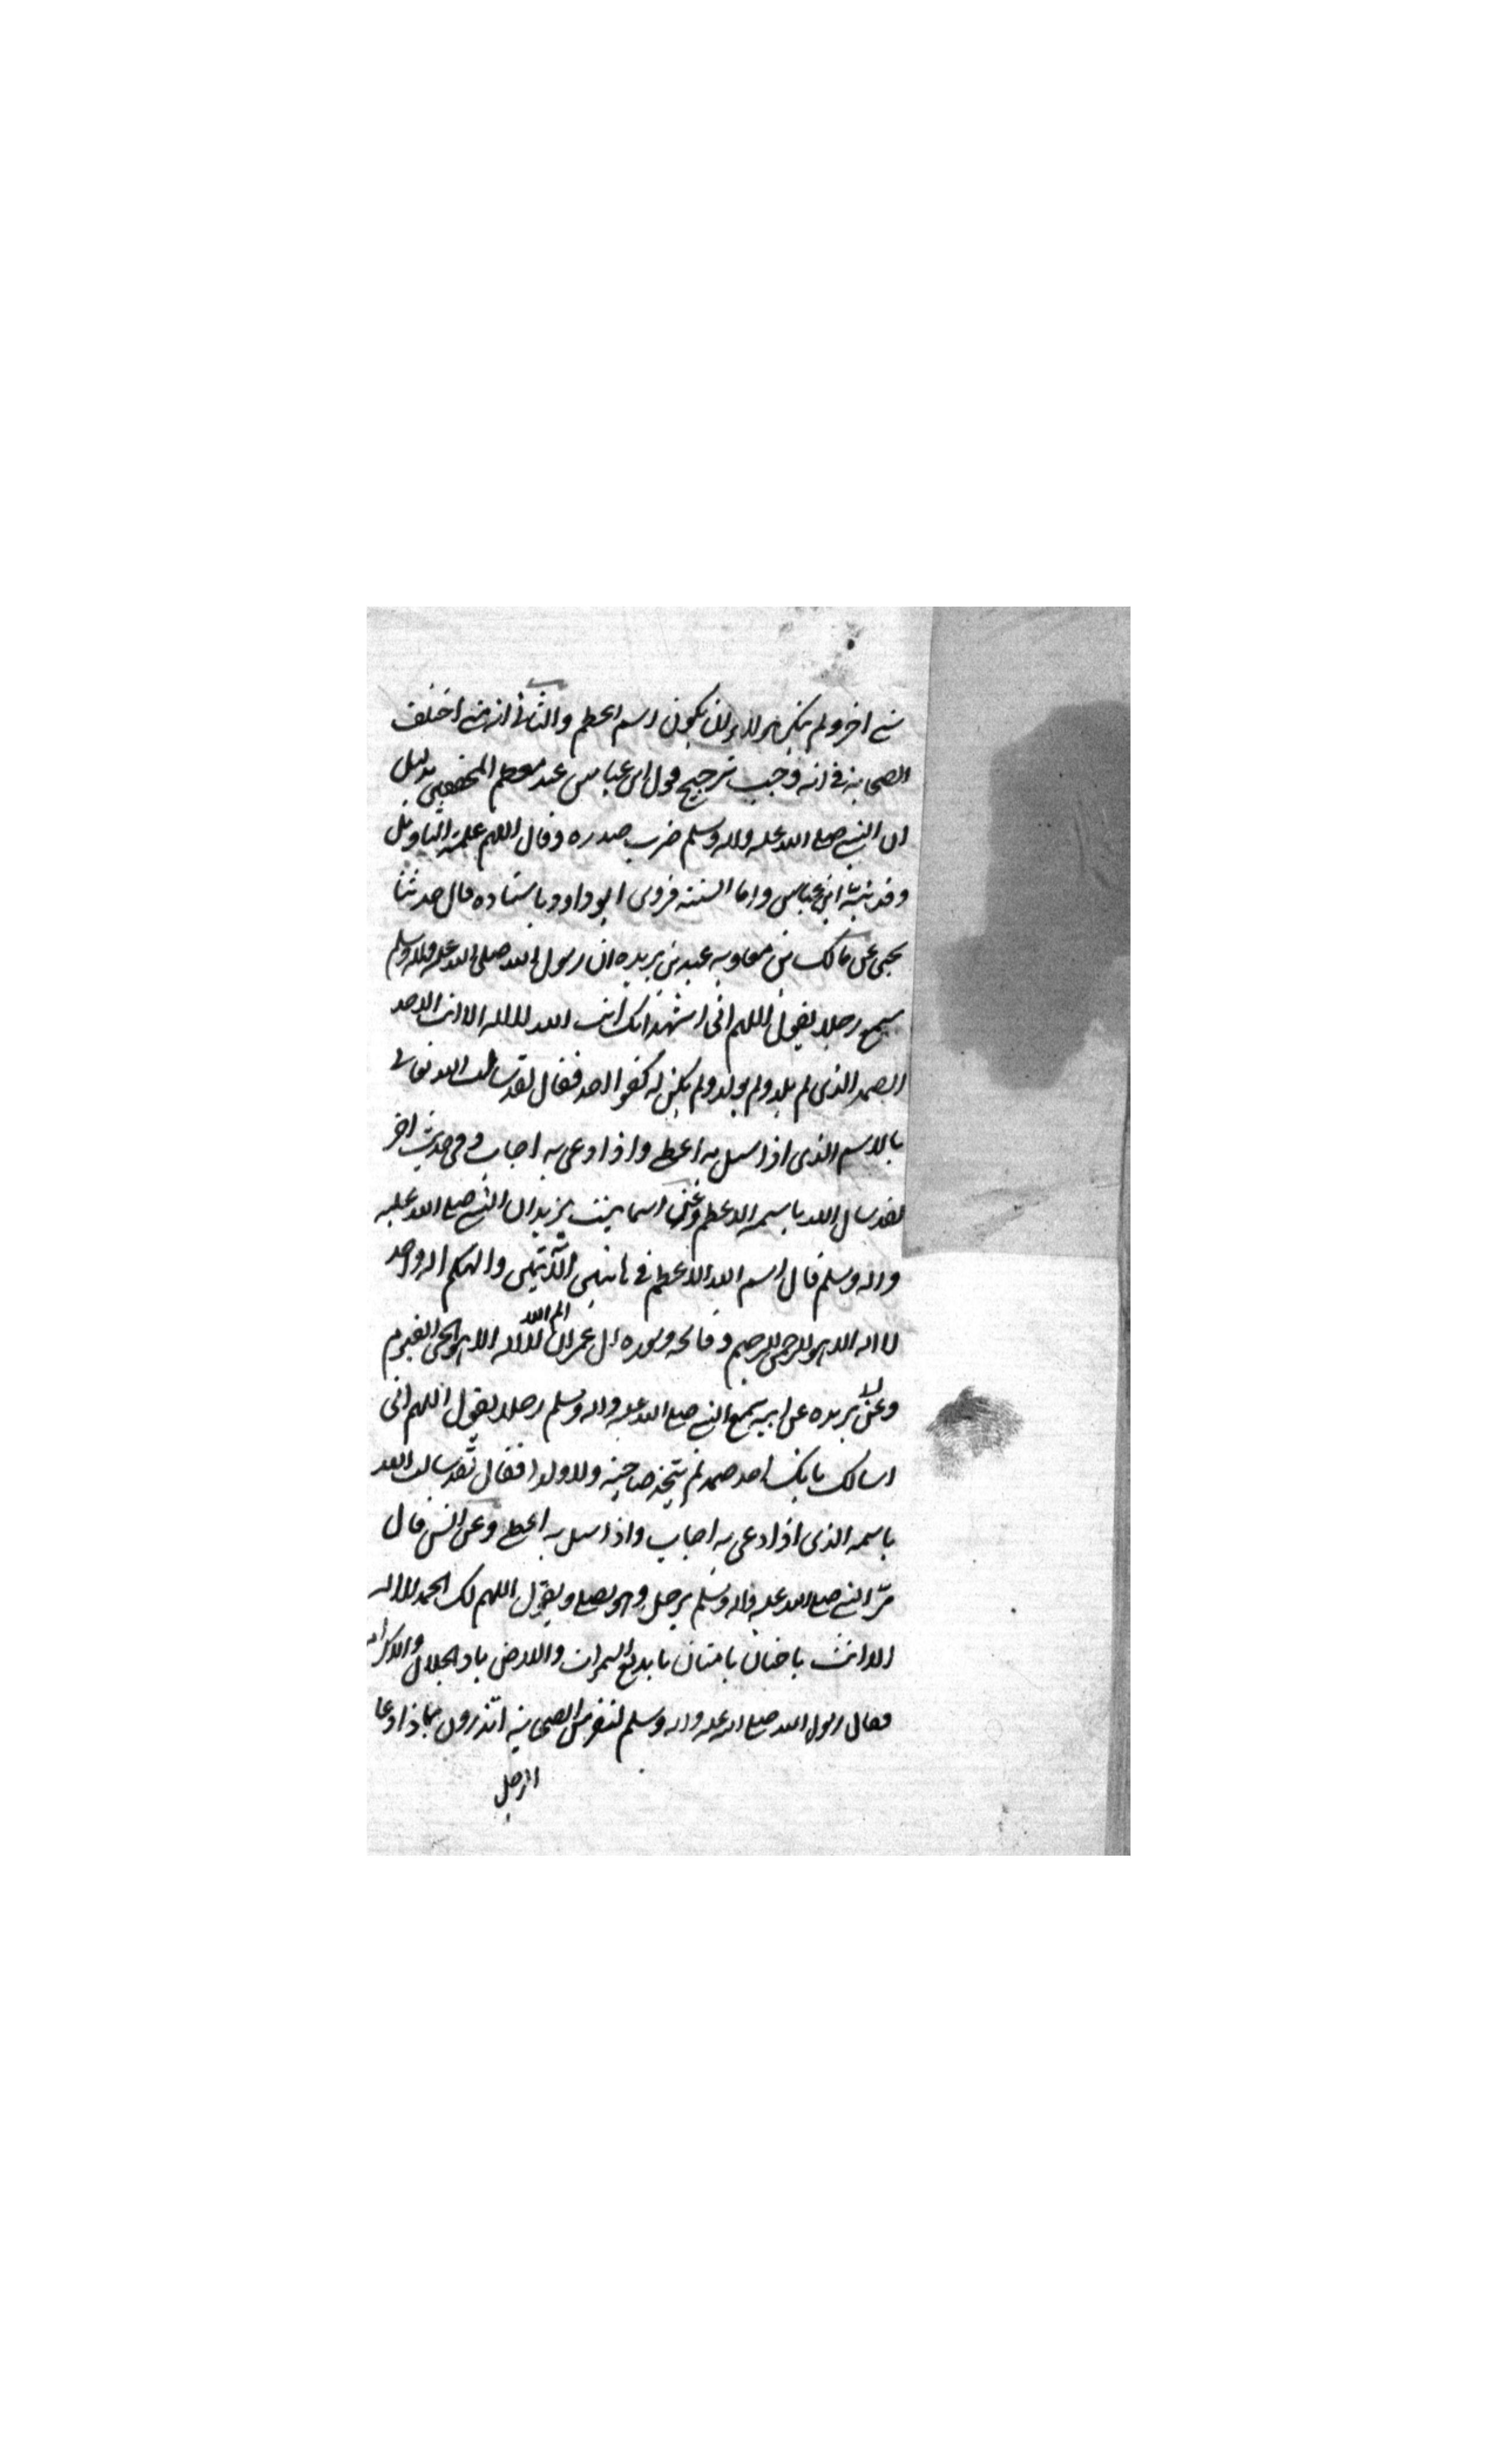 شي اخر ولم ينكر هو الا ان يكون اسم اعظم والثاني انه متى اختلف
الصحابة في انه وجب ترجيح قول ابن عباس عند معظم المحققين بدليل
ان النبي صلى الله عليه واله وسلم ضرب صدره وقال اللهم علمه التاويل
وقد نبّه ابن عباس واما السنة فروى ابو داود باسناده قال حدثنا
يحيى عن مالك بن معاويه عبد بن بريده ان رسول الله صلى الله عليه واله وسلم
سمع رجلا يقول اللهم اني اشهد انك انت الله لا اله الا انت الاحد
الصمد الذي لم يلد ولم يولد ولم يكن له كفوا احد فقال لقد سالت الله تعالى
بالاسم الذي اذا سيل به اعطى واذا دعى به اجاب وفي حديث اخر
لقد سال الله باسمه الاعظم وعن اسما بنت يزيد ان النبي صلى الله عليه
واله وسلم قال اسم الله الاعظم في هاتين الآيتين والهكم اله واحد
لا اله الا هو الرحمن الرحيم وفاتحه سوره ال عمران الم الله لا اله الا هو الحي القيوم
وعن بريده عن ابيه سمع النبي صلى الله عليه واله وسلم رجلا يقول اللهم اني
اسالك بانك احد صمد لم يتخذ صاحبة ولا ولدا فقال لقد سالت الله
باسمه الذي اذا دعى به اجاب واذا سيل به اعطى وعن انس قال
مرّ النبي صلى الله عليه واله وسلم برجل وهو يصلي ويقول اللهم لك الحمد لا اله
الا انت يا حنان يا منان يا بديع السموات والارض يا ذا الجلال والاكرام
فقال رسول الله صلى الله عليه واله وسلم لنفر من الصحابة اتدرون بماذا دعا
الرجل